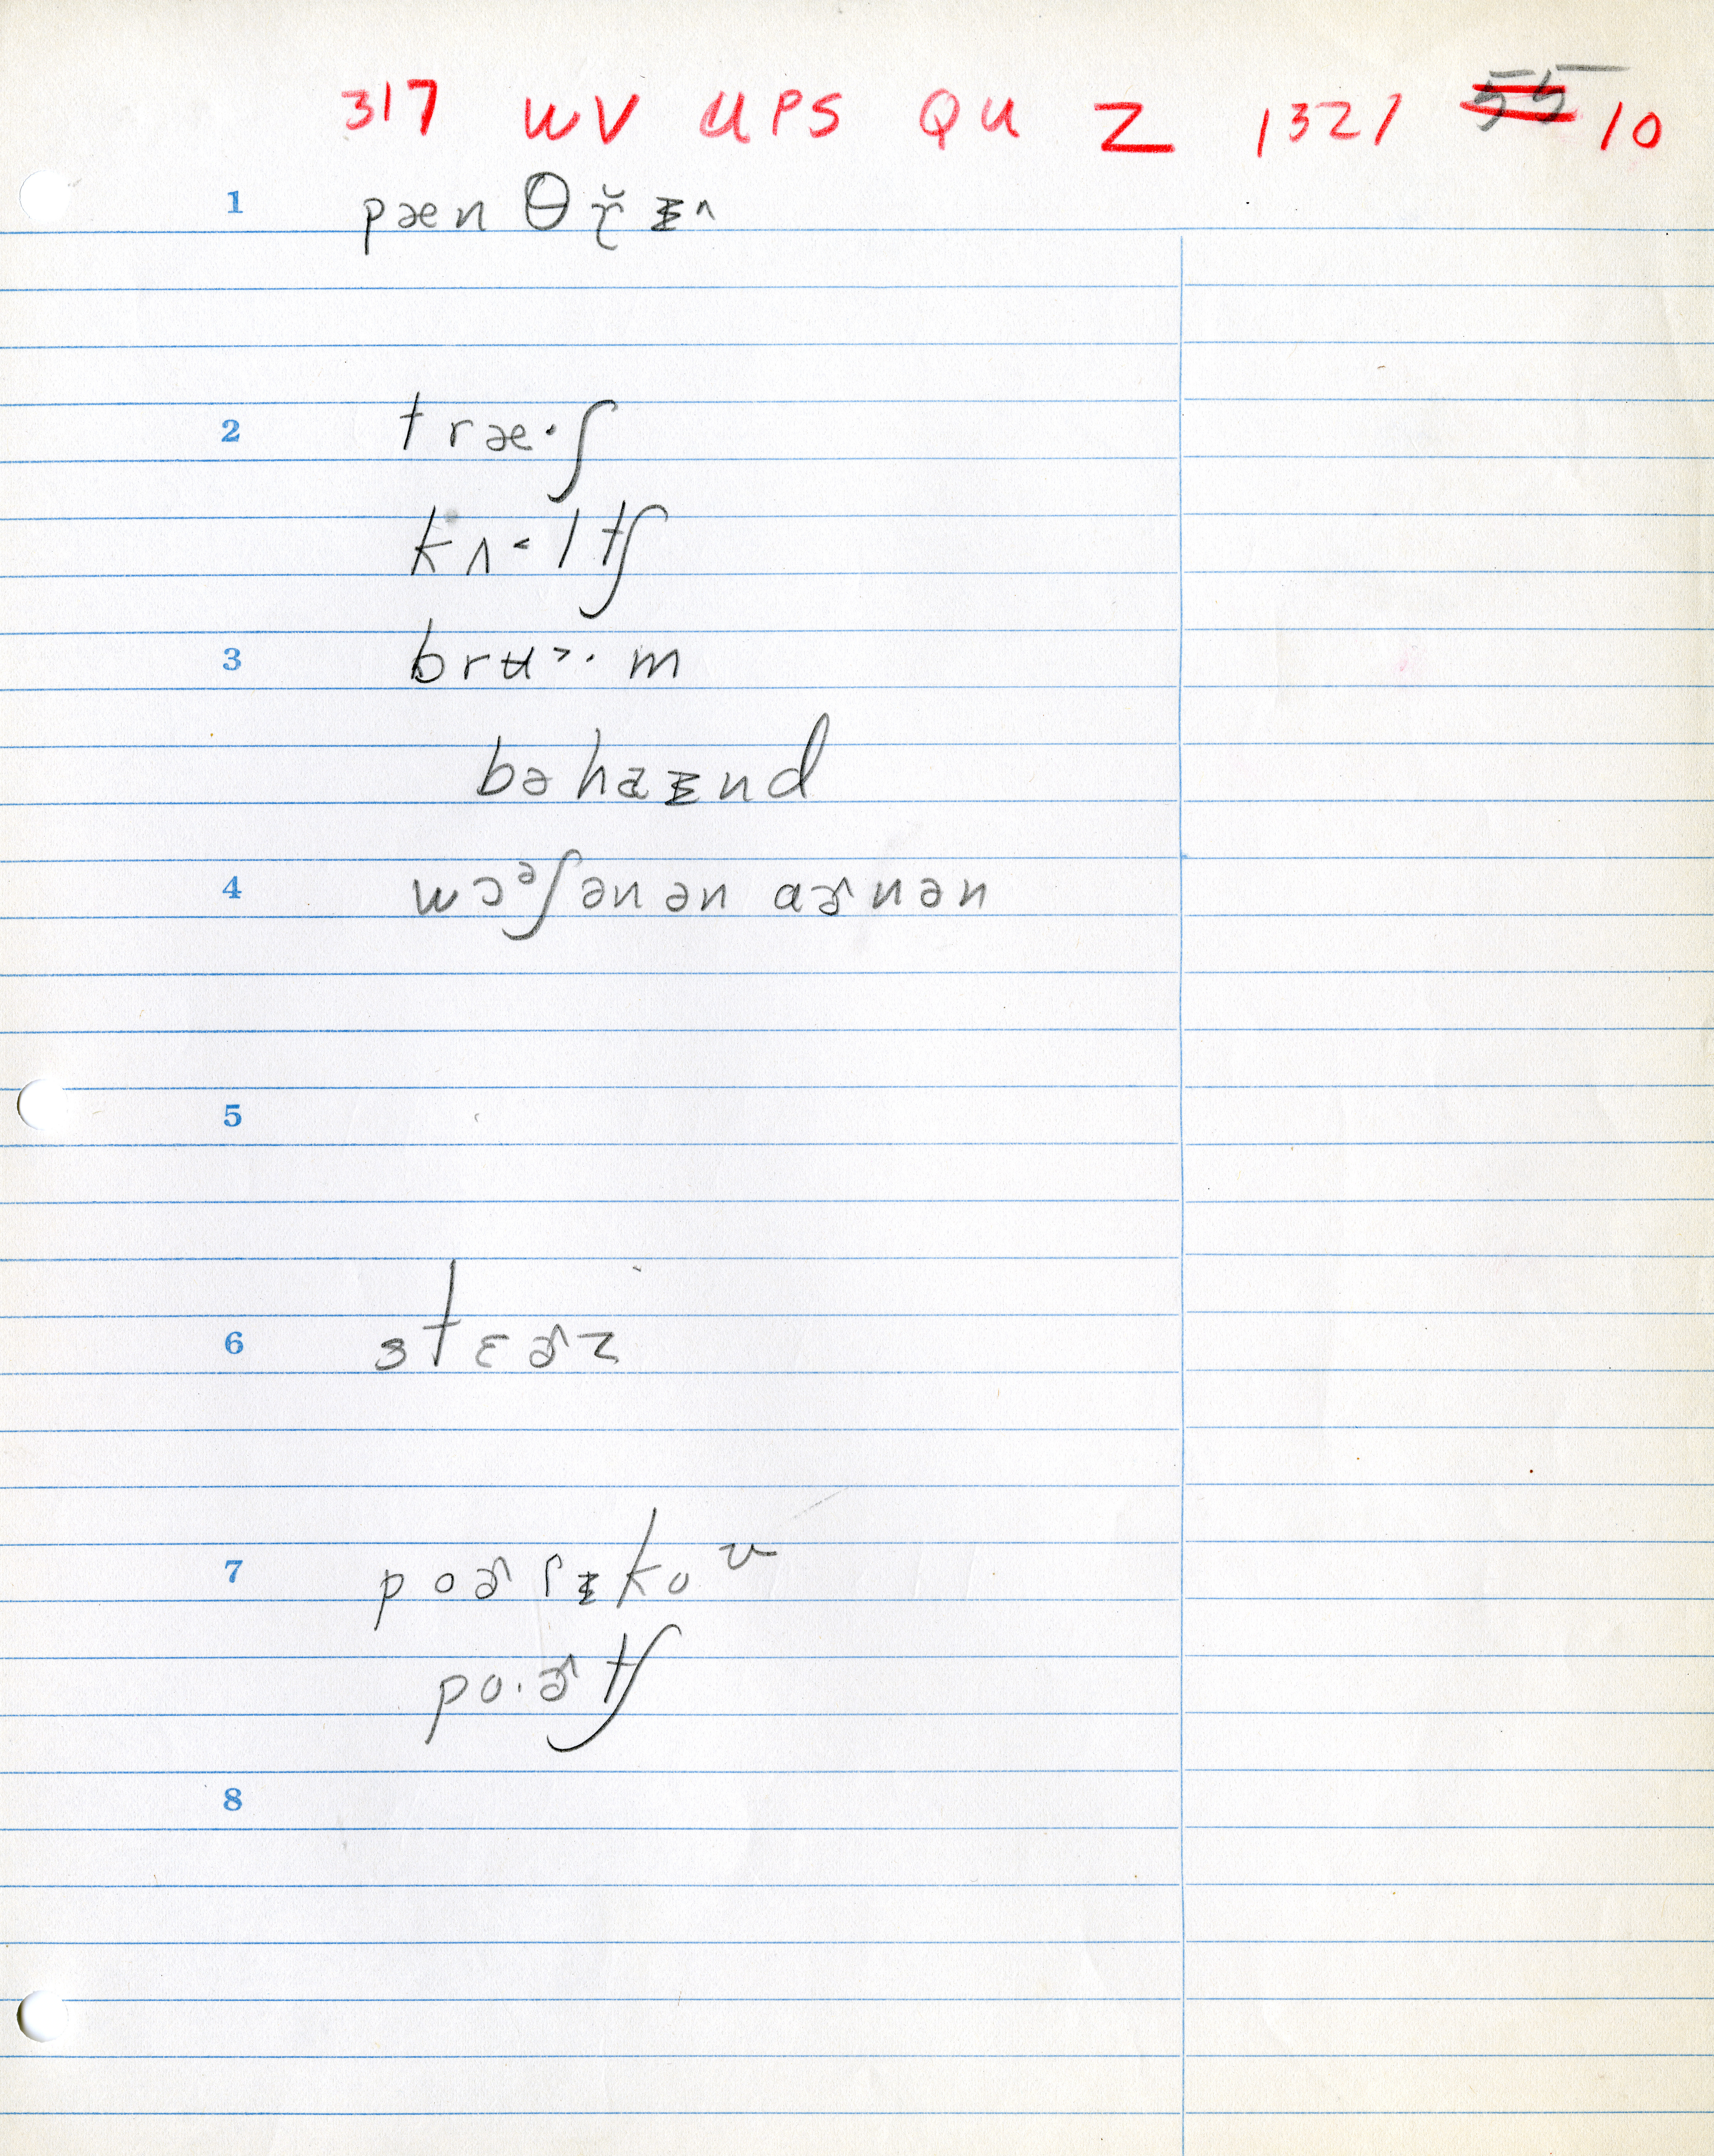 317 WV UPS QU Z 1321 55 10
1 pænθɤ̆ᵻ^
2 træ·ʃ
kʌ˂ltʃ
3 brʉ˃·m
bəhaᵻnd
4 wɔᵊʃənən aɚnən
5
6 stɛɚz
7 poɚɾᵻkoᶷ
po·ɚtʃ
8